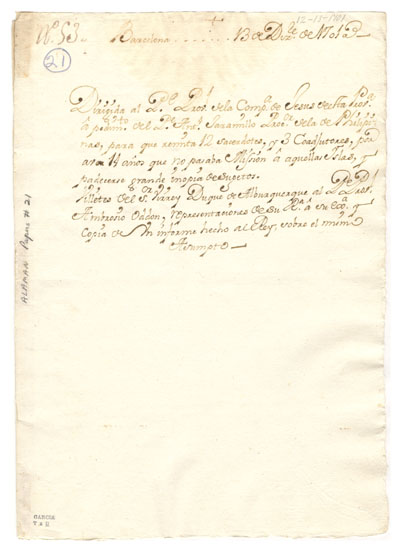 12-13-1701
Nº. 53
Barcelona 13 de Dizre. de 1701 as
21
Dirigida al Pe. Provl. de la Compa. de Jesus de esta Prova.
a pedimto. del Pe. Anto. Jaramillo Procr. de la de Philipi-
nas, para que remita 12 sacerdotes, y 3 Coadjutores, por
aver 14 años que no pasaba Mision a aquellas Islas, y
padecerse grande inopia de sugetos.
Villetes del Sr. Virrey Duque de Alburquerque al Pe. Provl.
Ambrosio Oddon, representaciones de su Ra. a su Exa. y
Copia de Un informe hecho al Rey, sobre el mismo
Asumpto
ALAMAN Papers # 21
GARCIA